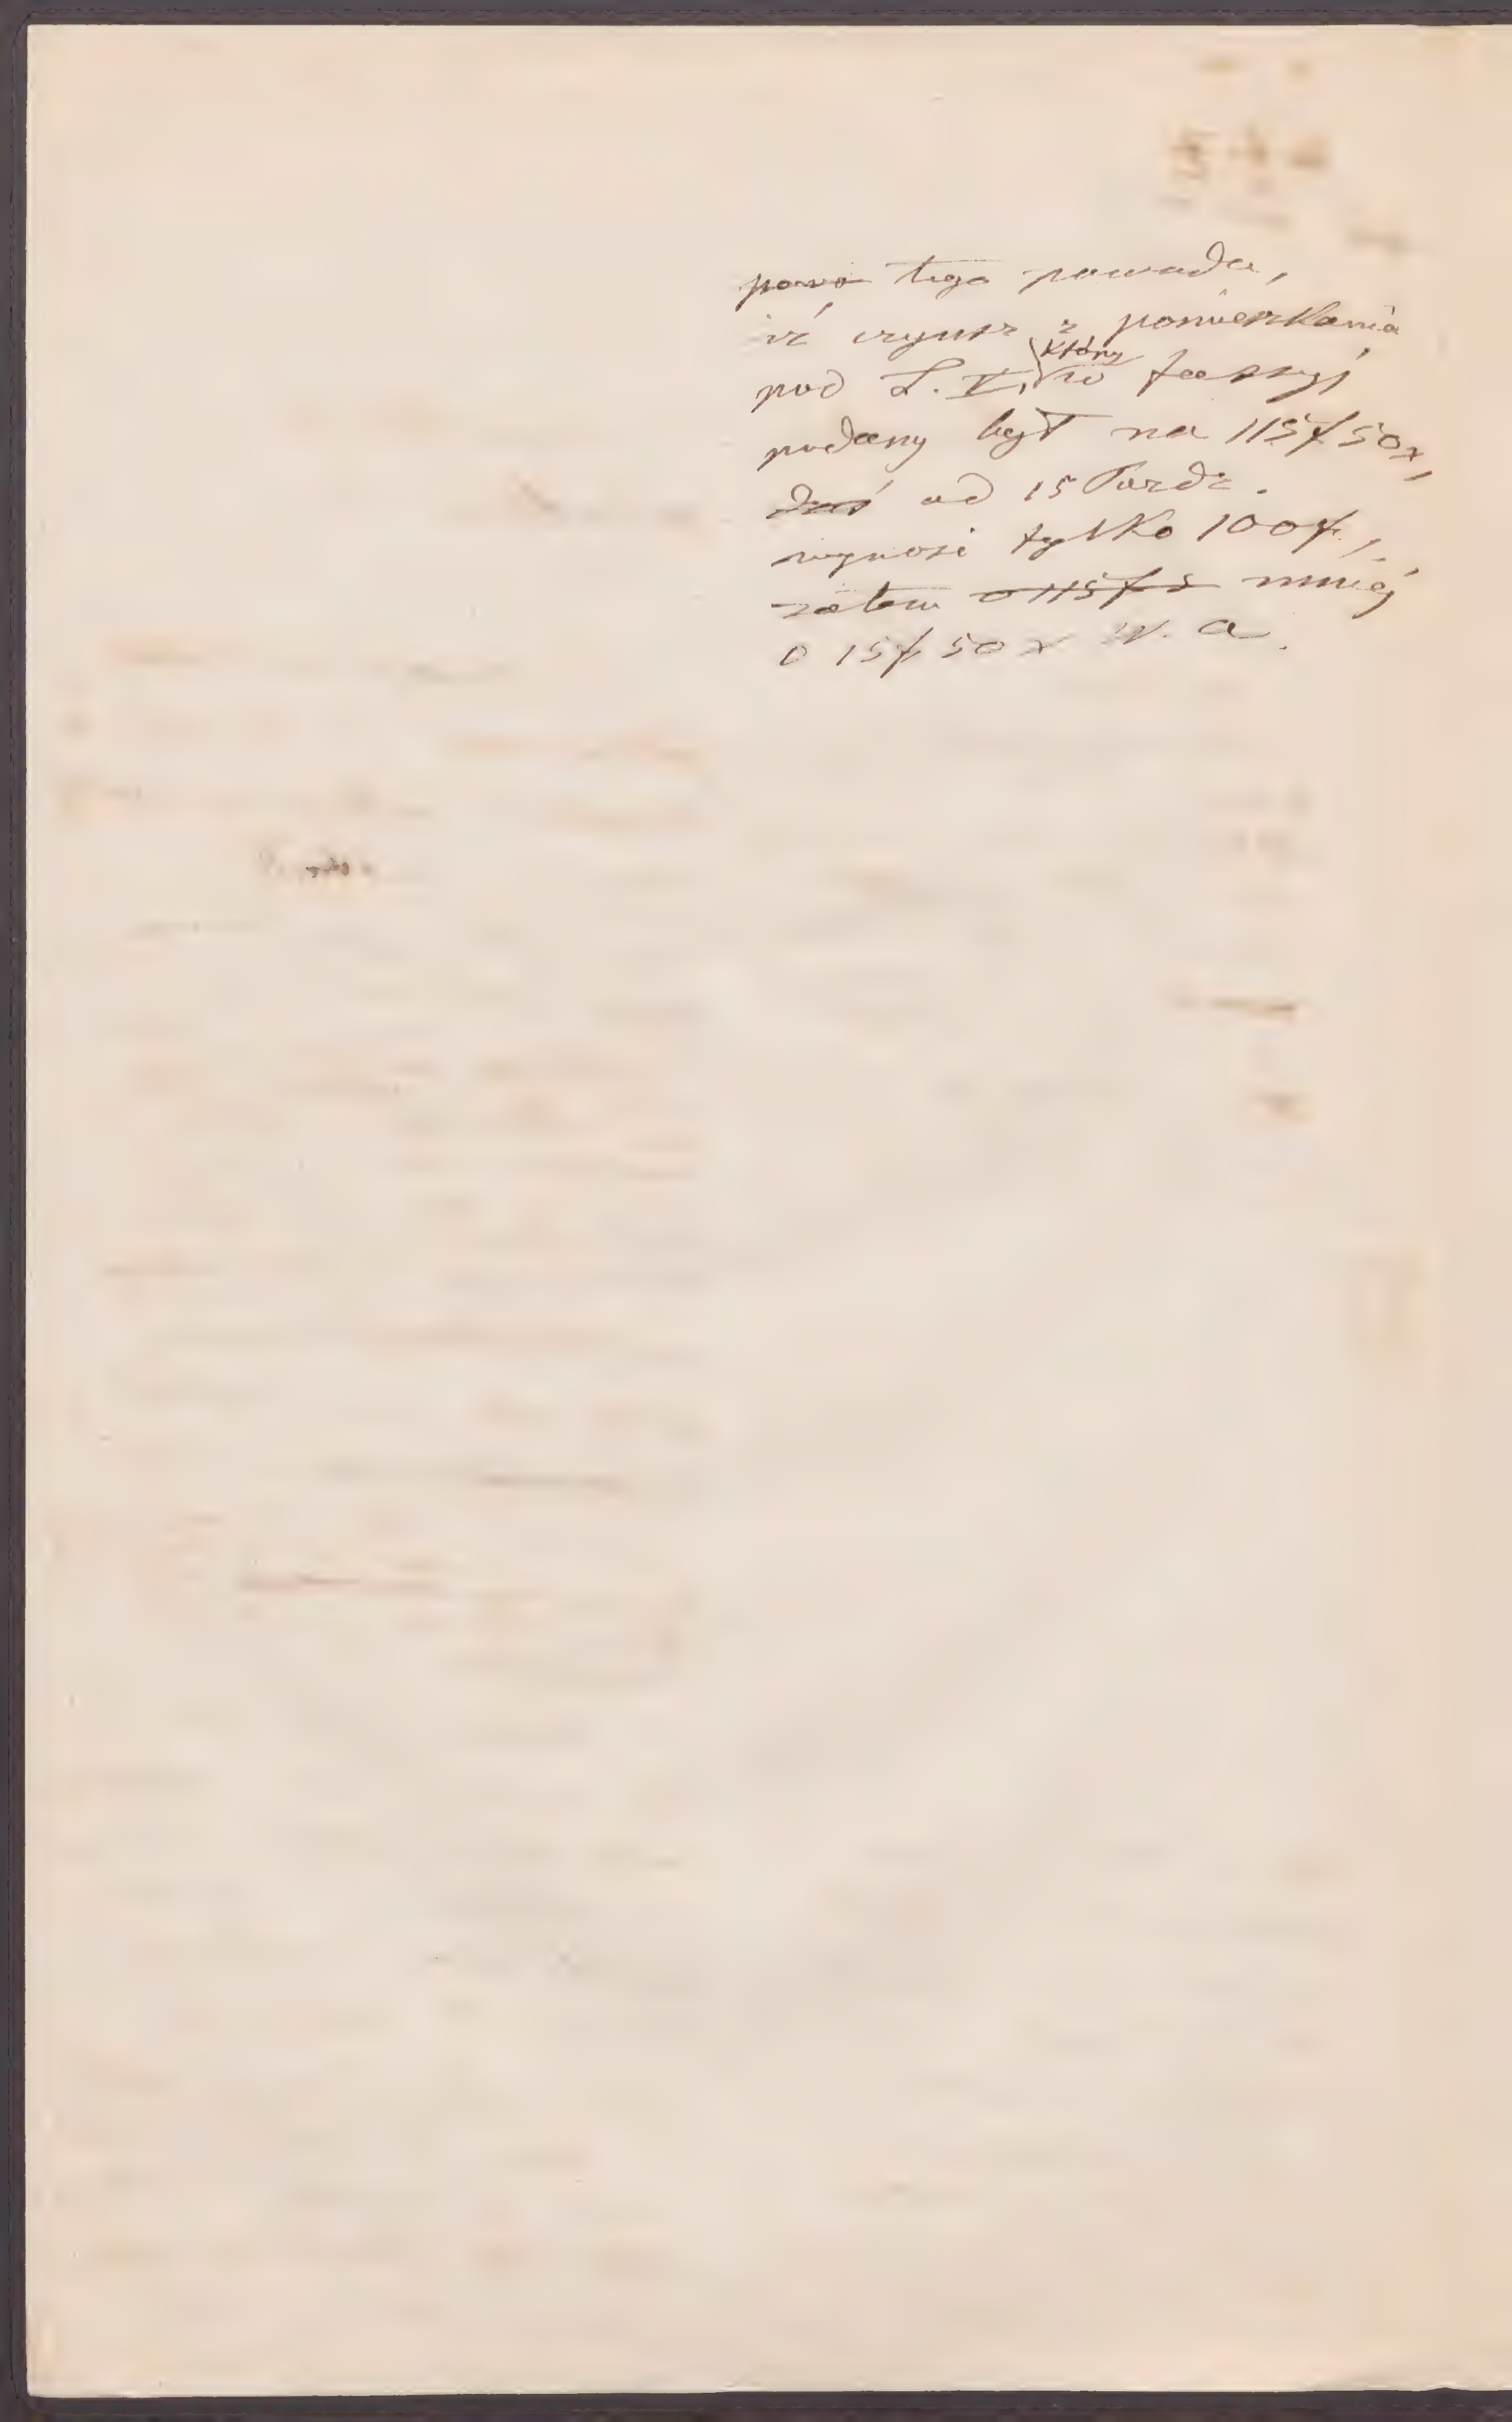 tego powodu,
iż czynsz z pomieszkania
pod L. V, który w fassyi
podany był na 115 f 50 x,
dziś od 15 Paźdz.
wynosi tylko 100 f,
zatem o 115 f 5 mniej
o 15 f 50 x w. a.